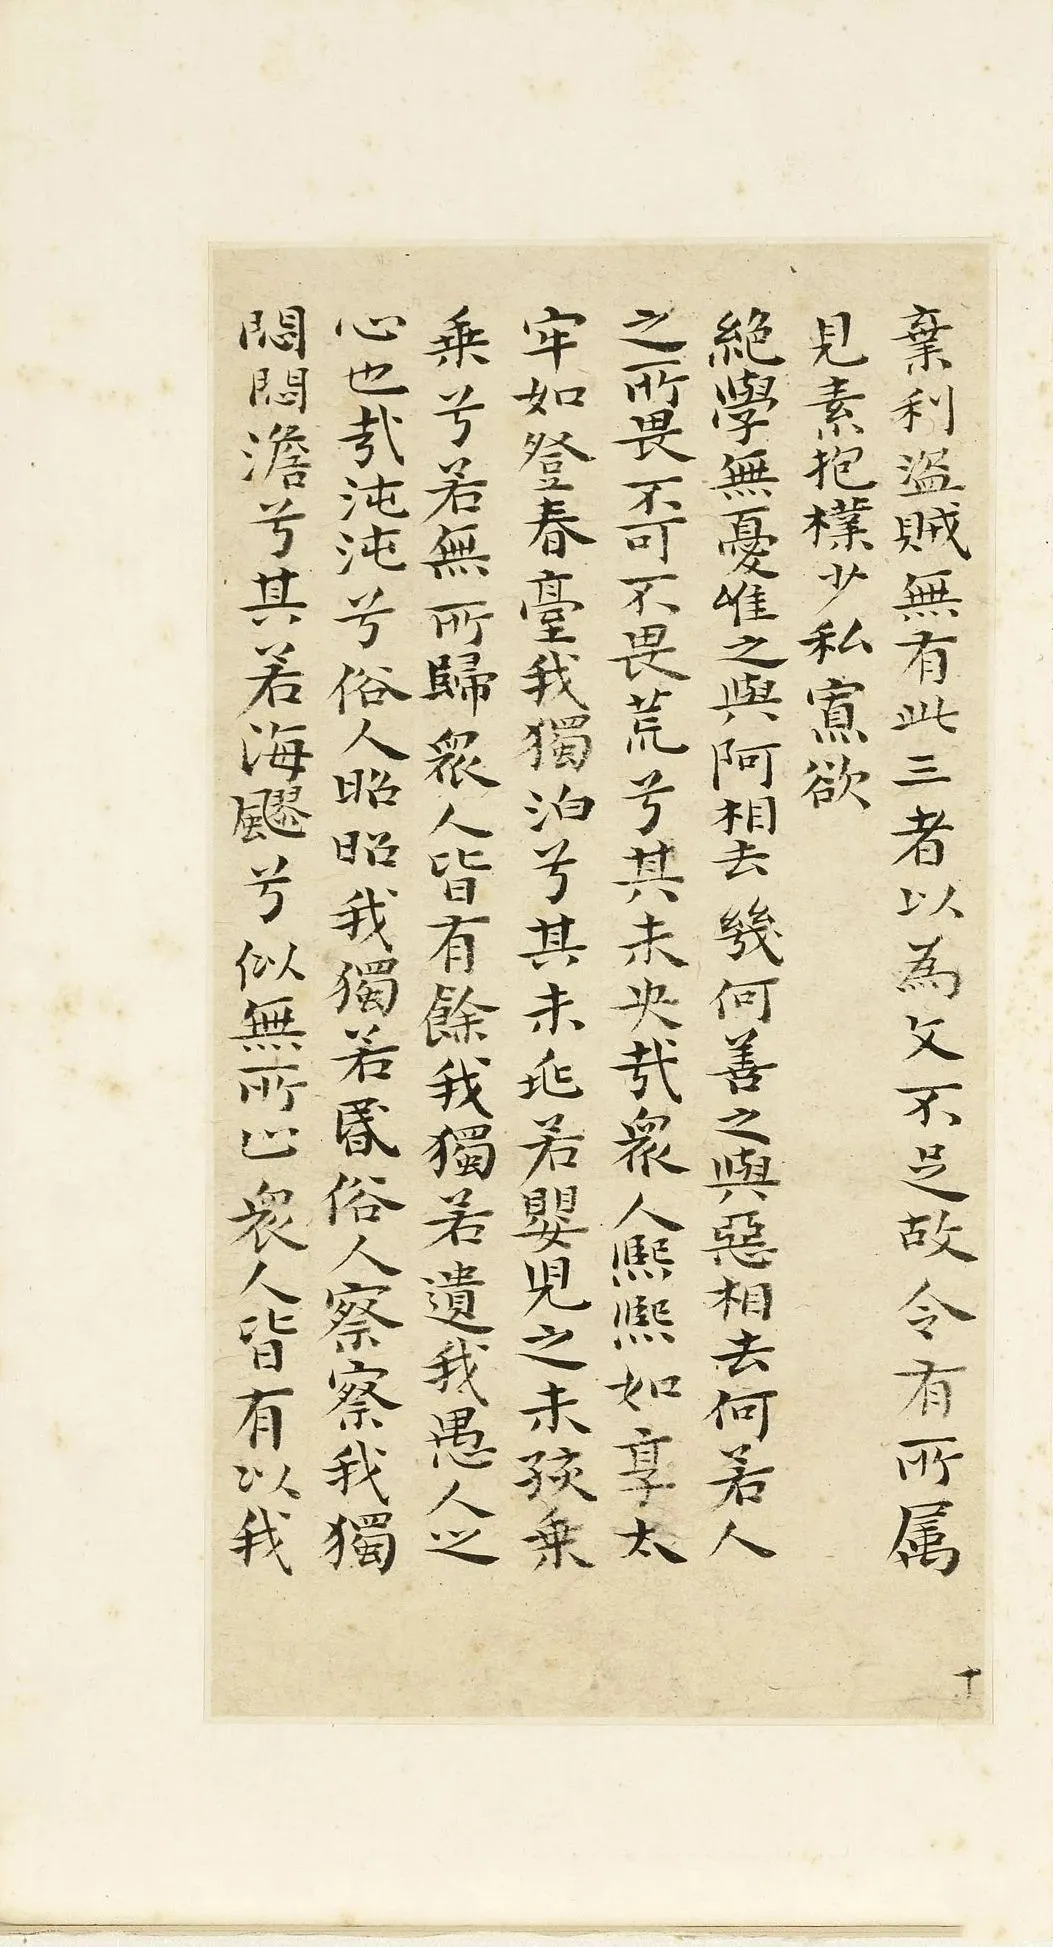 棄利盜賊無有此三者以為文不足故令有所属
見素抱樸少私寡欲
絶學無憂唯之與阿相去幾何善之與惡相去何若人
之所畏不可不畏荒兮其未央哉衆人熙熙如享太
牢如登春臺我獨泊兮其未兆若嬰児之未孩乗
乗兮若無所歸衆人皆有餘我獨若遺我愚人之
心也哉沌沌兮俗人昭昭我獨若昬俗人察察我獨
悶悶澹兮其若海飂兮似無所止衆人皆有以我
十